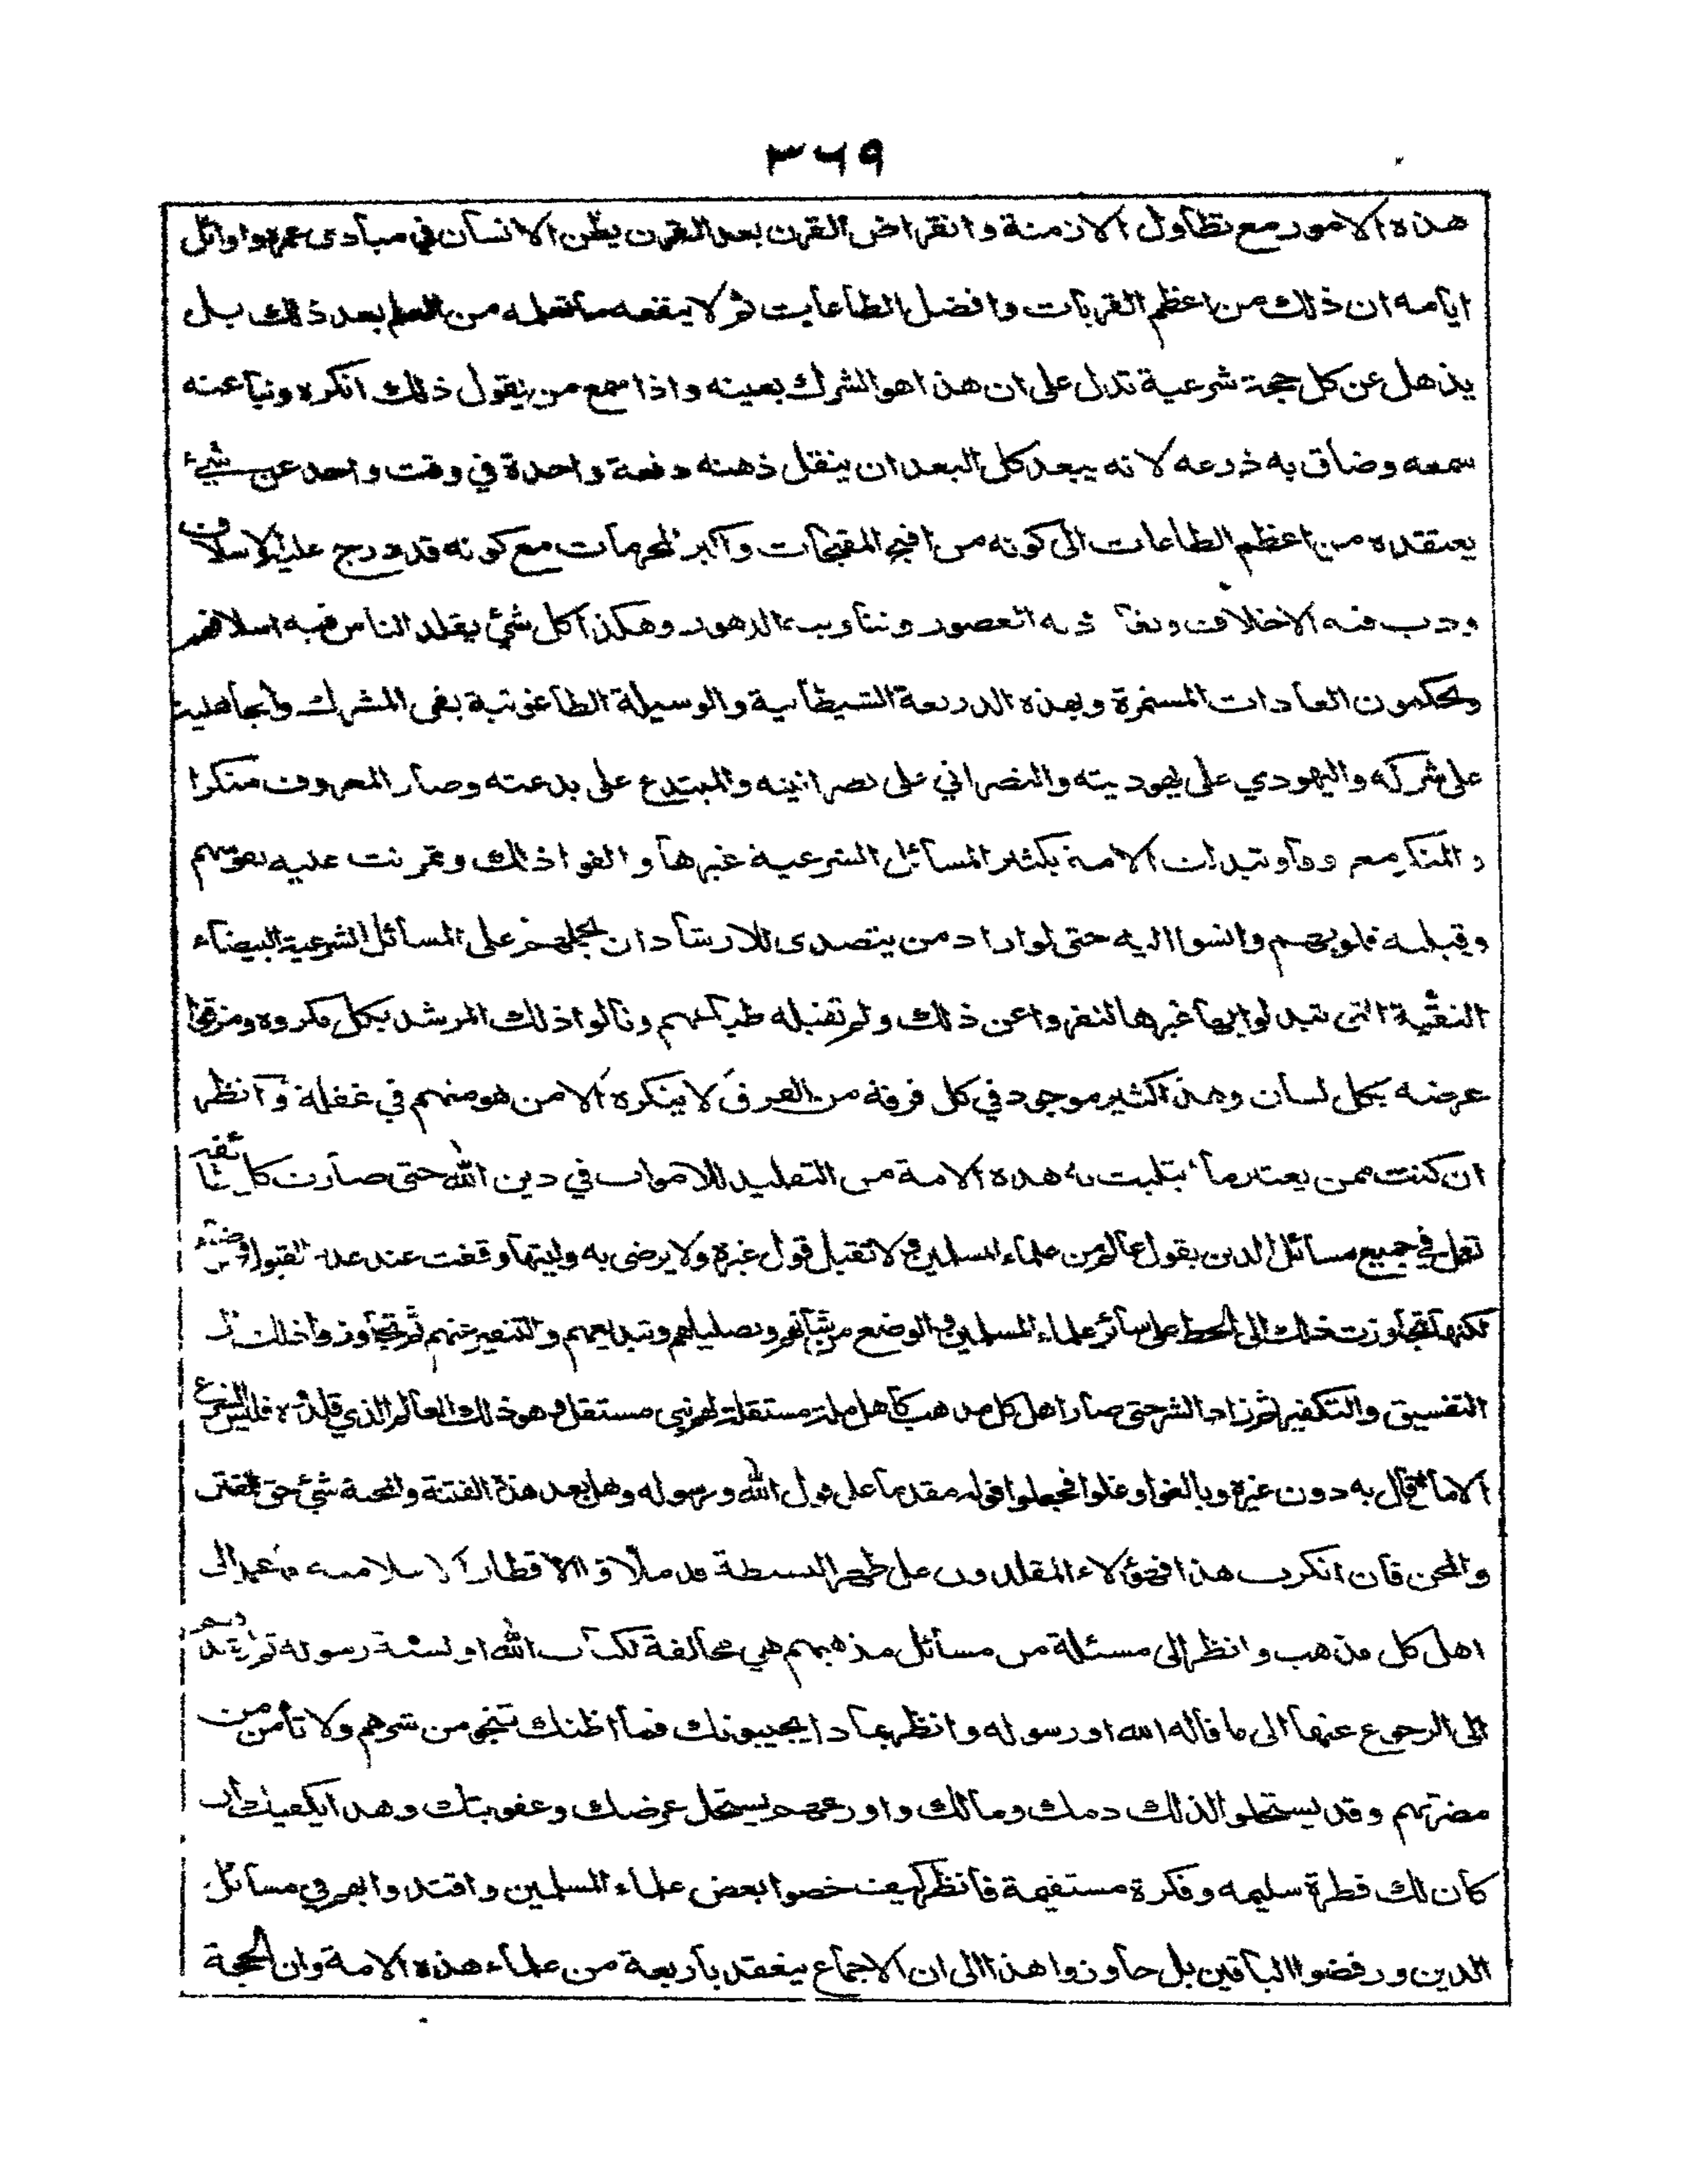 ٣٦٩
هذه الامور مع تطاول الازمنة وانقراض القرن بعد القرن يظن الانسان في مبادى عمره واوائل
ايامه ان ذلك من اعظم القربات وافضل الطاعات ثم لا ينفعه ما تعلمه من العلم بعد ذلك بل
يذهل عن كل حجة شرعية تدل على ان هذا هو الشرك بعينه واذا سمع من يقول ذلك انكره ونبا عنه
سمعه وضاق به ذرعه لانه يبعد كل البعد ان ينقل ذهنه دفعة واحدة في وقت واحد عن شيء
يعتقده من اعظم الطاعات الى كونه من اقبح المقبحات واكبر المحرمات مع كونه قد درج عليه الاسلاف
ودب فيه الاخلاف وتعا ثه العصور وتناوبه الدهور وهكذا كل شئ يقلد الناس فيه اسلافهم
ويحكمون العادات المستمرة وبهذه الذريعة الشيطانية والوسيلة الطاغوتية بقى المشرك والجاهلية
على شركه واليهودي على يهوديته والنصراني على نصرانيته والمبتدع على بدعته وصار المعروف منكرا
والمنكر معروفا وتبدلت الامة بكثير المسائل الشرعية غيرها والفوا ذلك وتمرنت عليه نفوسهم
وقبلته قلوبهم وانسوا اليه حتى لو اراد من يتصدى للارشاد ان يحملهم على المسائل الشرعية البيضاء
النقية التى تبدلوا بها غيرها لنفروا عن ذلك ولم تقبله طبائعهم ونالوا ذلك المرشد بكل مكروه ومزقوا
عرضه بكل لسان وهذا كثير موجود في كل فرقة من الفرق لا ينكره الا من هو منهم في غفلة وانظر
ان كنت ممن يعتبر ما ابتليت به هذه الامة من التقليد للاموات في دين الله حتى صارت كل طائفة
تعمل في جميع مسائل الدين بقول عالم من علماء المسلمين ولا تقبل قول غيره ولا يرضى به وليتها وقفت عند عدم القبول والرضاء
لكنها تجاوزت ذلك الى الحط على سائر علماء المسلمين والوضع من شأنهم وتضليلهم وتبديعهم والتنفير عنهم ثم تجاوزوا ذلك الى
التفسيق والتكفير ثم زاد الشر حتى صار اهل كل مذهب كأهل ملة مستقلة لهم نبي مستقل وهو ذلك العالم الذي قلدوه فليس الشرع
الا ما قال به دون غيره وبالغوا وغلوا فجعلوا قوله مقدما على قول الله ورسوله وهل بعد هذه الفتنة والمحنة شئ من الفتن
والمحن فان انكرت هذا فهؤلاء المقلدون على ظهر البسيطة قد ملأوا الاقطار الاسلامية فاعمد الى
اهل كل مذهب وانظر الى مسئلة من مسائل مذهبهم هي مخالفة لكتاب الله او لسنة رسوله ثم ارشدهم
الى الرجوع عنها الى ما قاله الله او رسوله وانظر بماذا يجيبونك فما اظنك تنجو من شرهم ولا تأمن من
مضرتهم وقد يستحلوا لذلك دمك ومالك واورعهم يستحل عرضك وعقوبتك وهذا يكفيك ان
كان لك فطرة سليمه وفكرة مستقيمة فانظر كيف خصوا بعض علماء المسلمين واقتدوا بهم في مسائل
الدين ورفضوا الباقين بل جاوزوا هذا الى ان الاجماع ينعقد باربعة من علماء هذه الامة وان الحجة